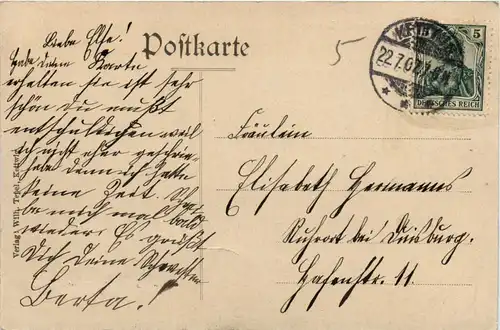 Postkarte
5
KETTWIG
22.7.0
5
DEUTSCHES REICH
Liebe Else!
Habe deine Karte
erhalten sie ist sehr
schön du mußt
entschuldigen weil
ich nicht eher geschrie-
ben denn ich hatte
keine Zeit. Schrei-
be mich mal bald
wieder. Es grüßt
Dich deine Schwester
Berta!
Fräulein
Elisabeth Hermanns
Ruhrort bei Duisburg.
Hafenstr. 11.
Verlag: Wilh. Tepel, Kettwig